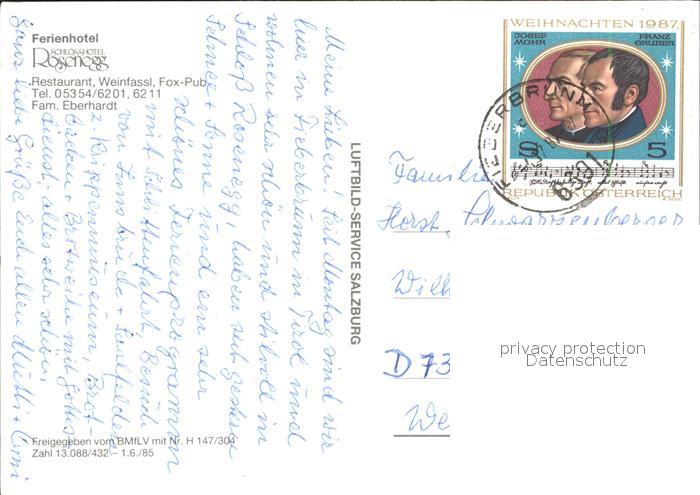 Ferienhotel
SCHLOSSHOTEL
Rosenegg
Restaurant, Weinfassl, Fox-Pub
Tel. 05354/6201, 6211
Fam. Eberhardt
Meine Lieben, seit Montag sind wir
hier in Fieberbrunn in Tirol und
wohnen sehr schön und stilvoll im
Schloß Rosenegg, haben seit gestern
Schnee + Sonne und ein sehr
schönes Ferienprogramm
mit Schlittenfahrt, Besuch
von Innsbruck +
z. Krippenmuseum, Brot-
backen, Brotweihe mit Gottes-
dienst, alles sehr schön.
Ganz liebe Grüße Euch allen Mutti +
LUFTBILD-SERVICE SALZBURG
Freigegeben vom BMfLV mit Nr. H 147/304
Zahl 13.088/432 – 1.6./85
WEIHNACHTEN 1987
JOSEF MOHR
FRANZ GRUBER
S 5
REPUBLIK ÖSTERREICH
FIEBERBRUNN
6391
Familie
Horst Schwarzenberger
Wilh
D 73
We
privacy protection
Datenschutz